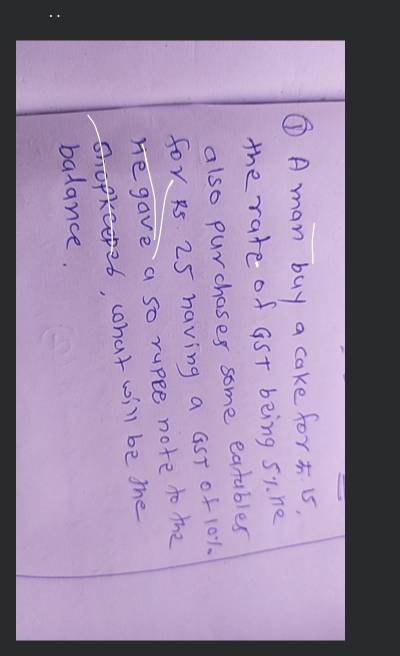 ① A man buy a cake for ₹. 15,
the rate of GST being 5%. he
also purchases some eatables
for Rs. 25 having a GST of 10%.
he gave a 50 rupee note to the
shopkeeper, what will be the
balance.